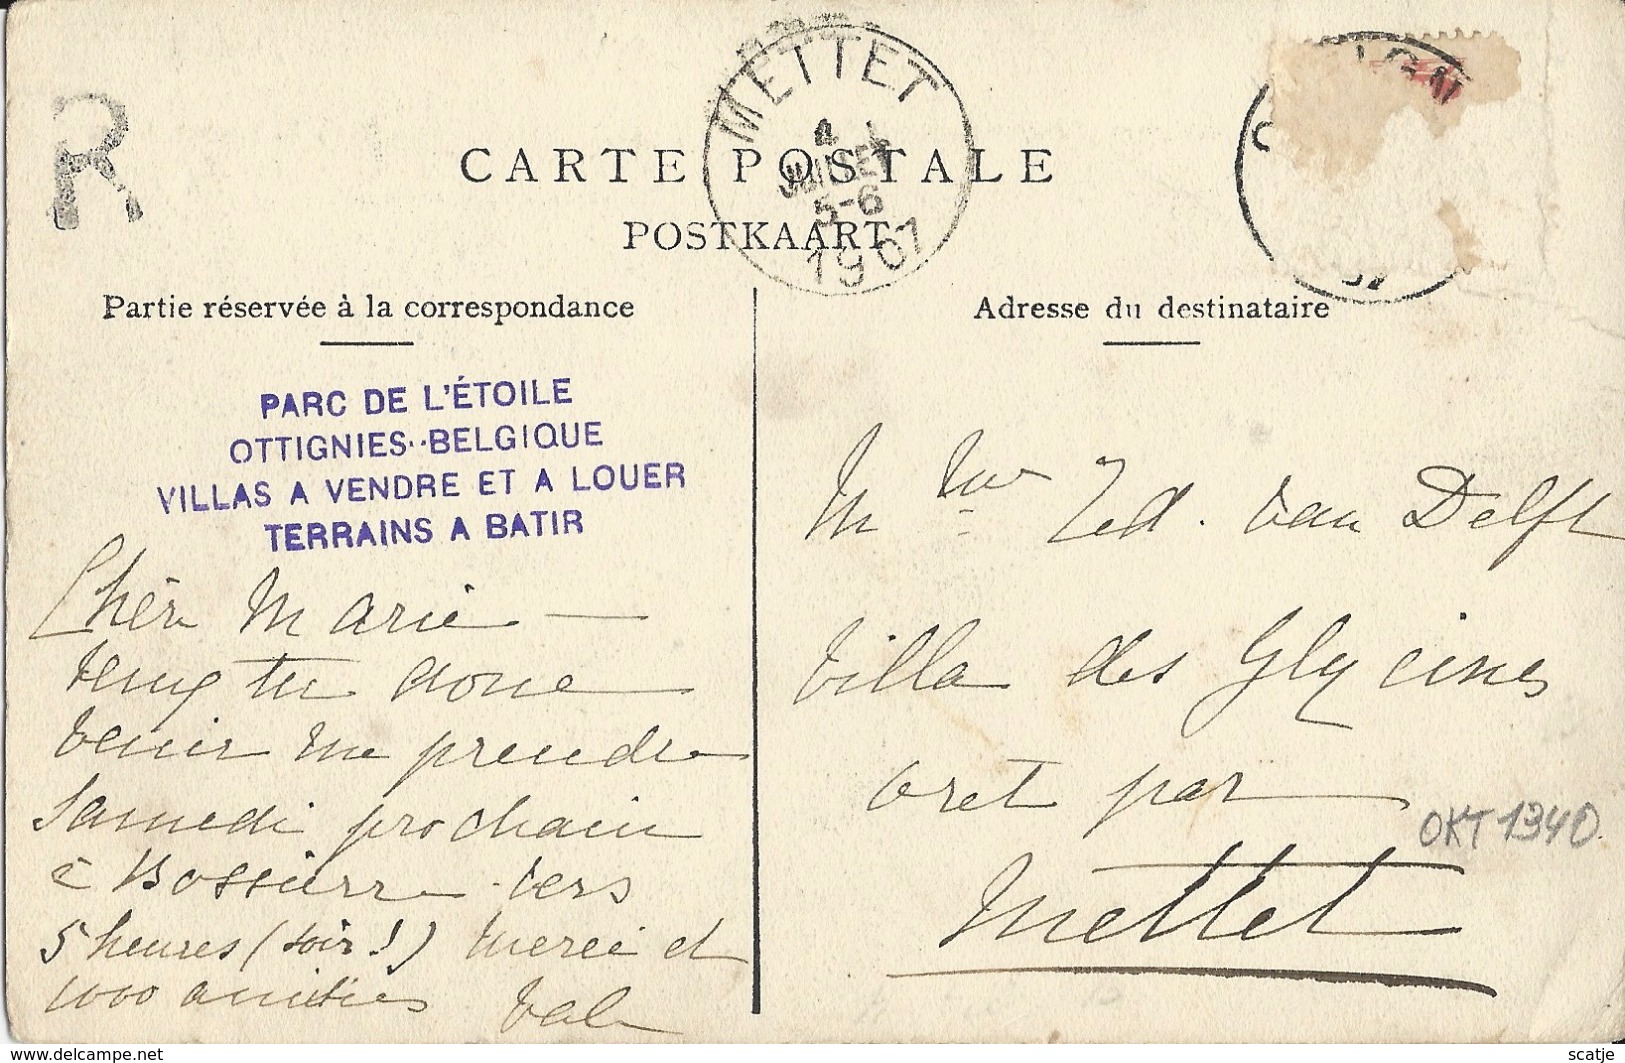 R
METTET
4
JUILLET
5-6
1907
CARTE POSTALE
POSTKAART
Partie réservée à la correspondance
Adresse du destinataire
PARC DE L'ÉTOILE
OTTIGNIES-BELGIQUE
VILLAS A VENDRE ET A LOUER
TERRAINS A BATIR
Chère Marie —
veux tu donc
venir me prendre
samedi prochain
à Bossière vers
5 heures (soir!) merci et
1000 amitiés Val
van Delft
Villa des Glycines
Oret par
Mettet
OKT 1340
www.delcampe.net
scatje